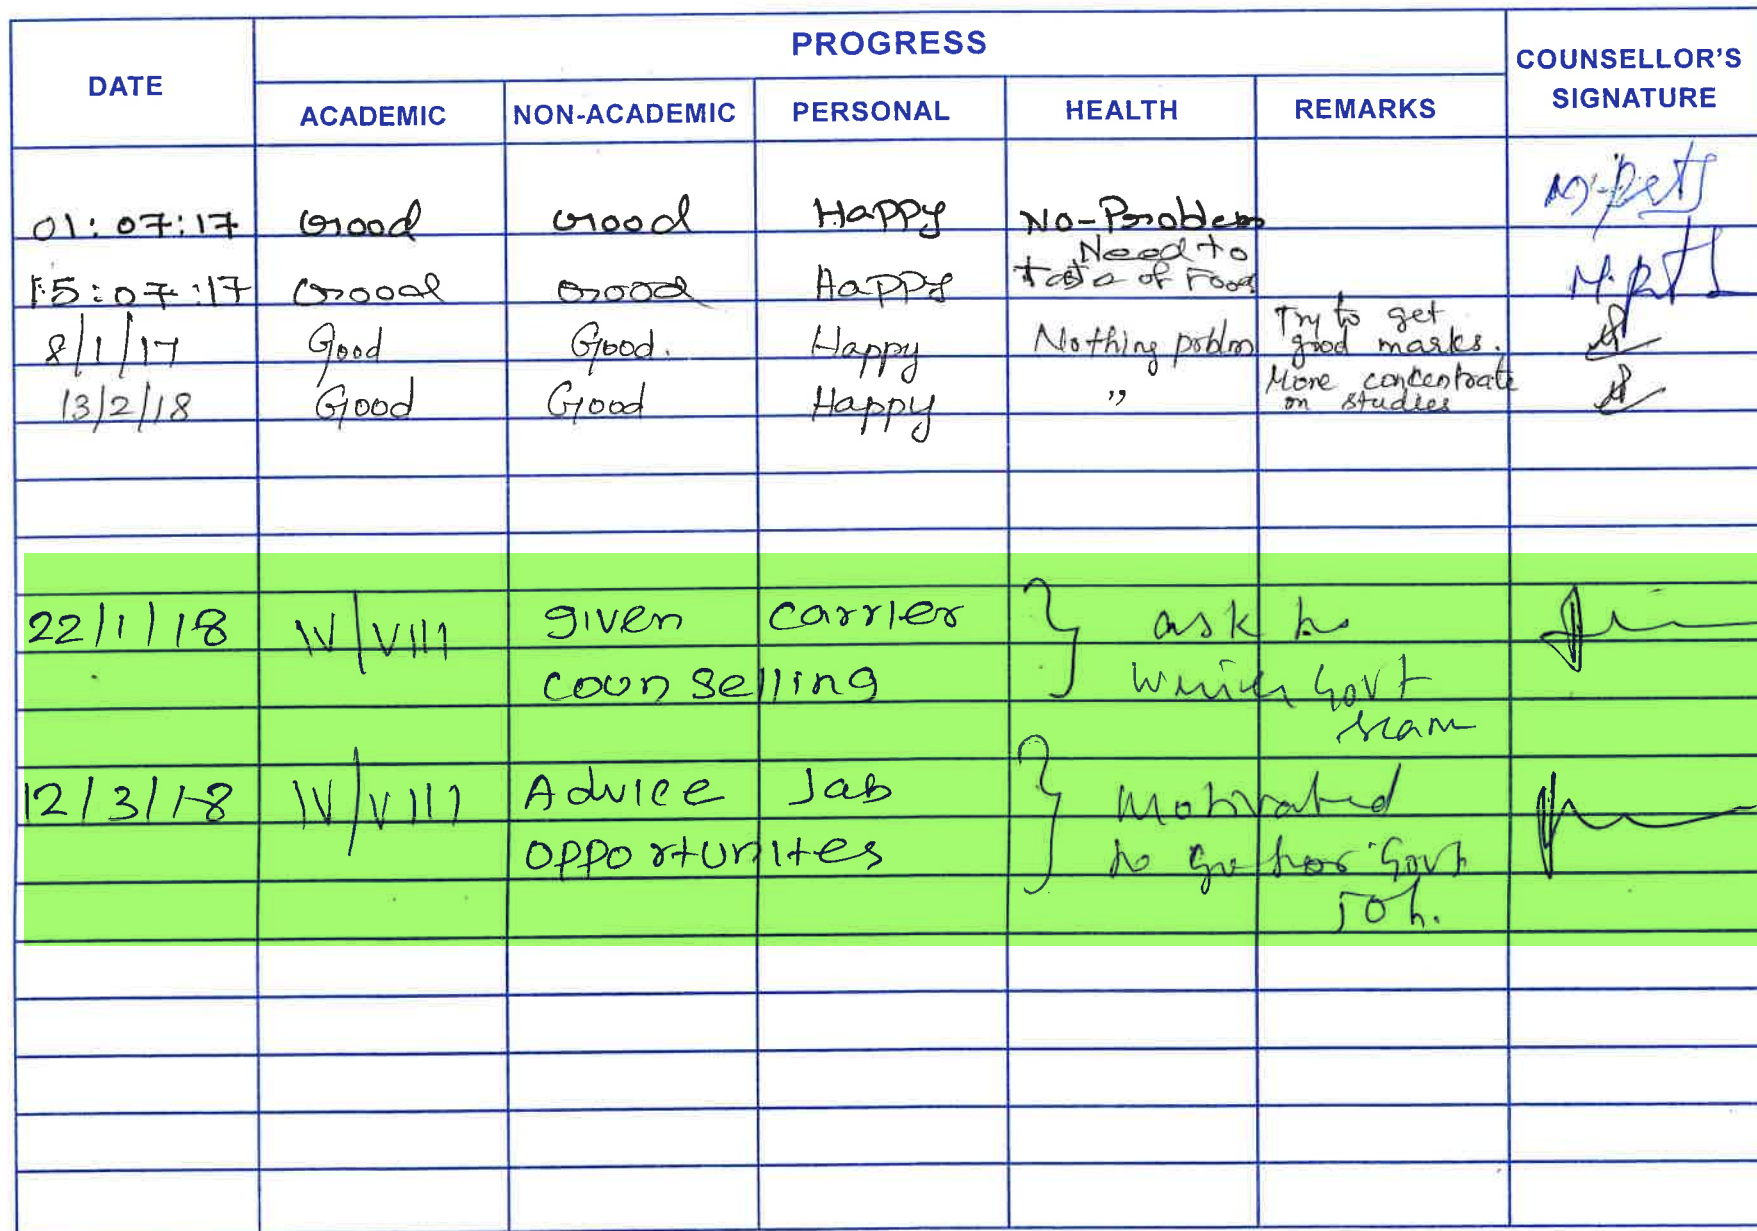 PROGRESS
DATE COUNSELLOR'S SIGNATURE
ACADEMIC NON-ACADEMIC PERSONAL HEALTH REMARKS
01:07:17 Good Good Happy No-Problem
Need to
15:07:17 Good Good Happy Taste of Food
8/1/17 Good Good. Happy Nothing problm Try to get good marks.
13/2/18 Good Good Happy " More concentrate on studies
22/1/18 IV/VIII given carrier } ask to
counselling which Govt
12/3/18 IV/VIII Advice Job } Motivated
opportunites to go for Govt
Job.